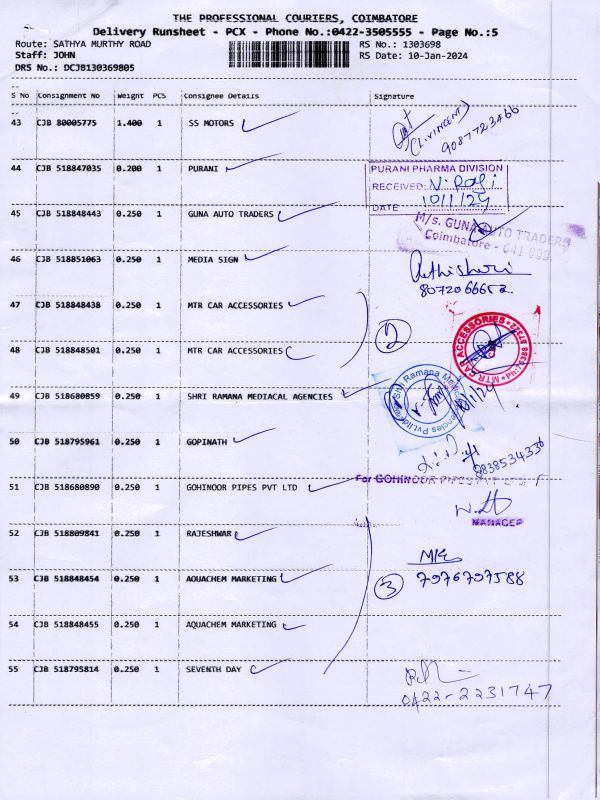 THE PROFESSIONAL COURIERS, COIMBATORE
Delivery Runsheet - PCX - Phone No.:0422-3505555 - Page No.:5
Route: SATHYA MURTHY ROAD RS No.: 1303698
Staff: JOHN RS Date: 10-Jan-2024
DRS No.: DCJB130369805
S No Consignment No Weight PCS Consignee Details Signature
43 CJB 80005775 1.400 1 SS MOTORS
(L.VINCENT)
9087723466
44 CJB 518847035 0.200 1 PURANI
PURANI PHARMA DIVISION
RECEIVED: V. Raji
DATE 10/1/24
45 CJB 518848443 0.250 1 GUNA AUTO TRADERS
M/s. GUNA AUTO TRADERS
Coimbatore - 641
46 CJB 518851063 0.250 1 MEDIA SIGN
8072066652
47 CJB 518848438 0.250 1 MTR CAR ACCESSORIES
2
48 CJB 518848501 0.250 1 MTR CAR ACCESSORIES
MTR CAR ACCESSORIES
49 CJB 518680859 0.250 1 SHRI RAMANA MEDIACAL AGENCIES
Shri Ramana
10/1/24
50 CJB 518795961 0.250 1 GOPINATH
9838534336
51 CJB 518680890 0.250 1 GOHINOOR PIPES PVT LTD
For GOHINOOR PIPES PVT LTD.
MANAGER
52 CJB 518809841 0.250 1 RAJESHWAR
53 CJB 518848454 0.250 1 AQUACHEM MARKETING
3 7976797588
54 CJB 518848455 0.250 1 AQUACHEM MARKETING
55 CJB 518795814 0.250 1 SEVENTH DAY
0422-2231747